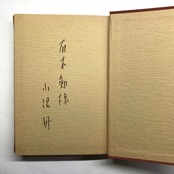 有木勉様
小沼丹